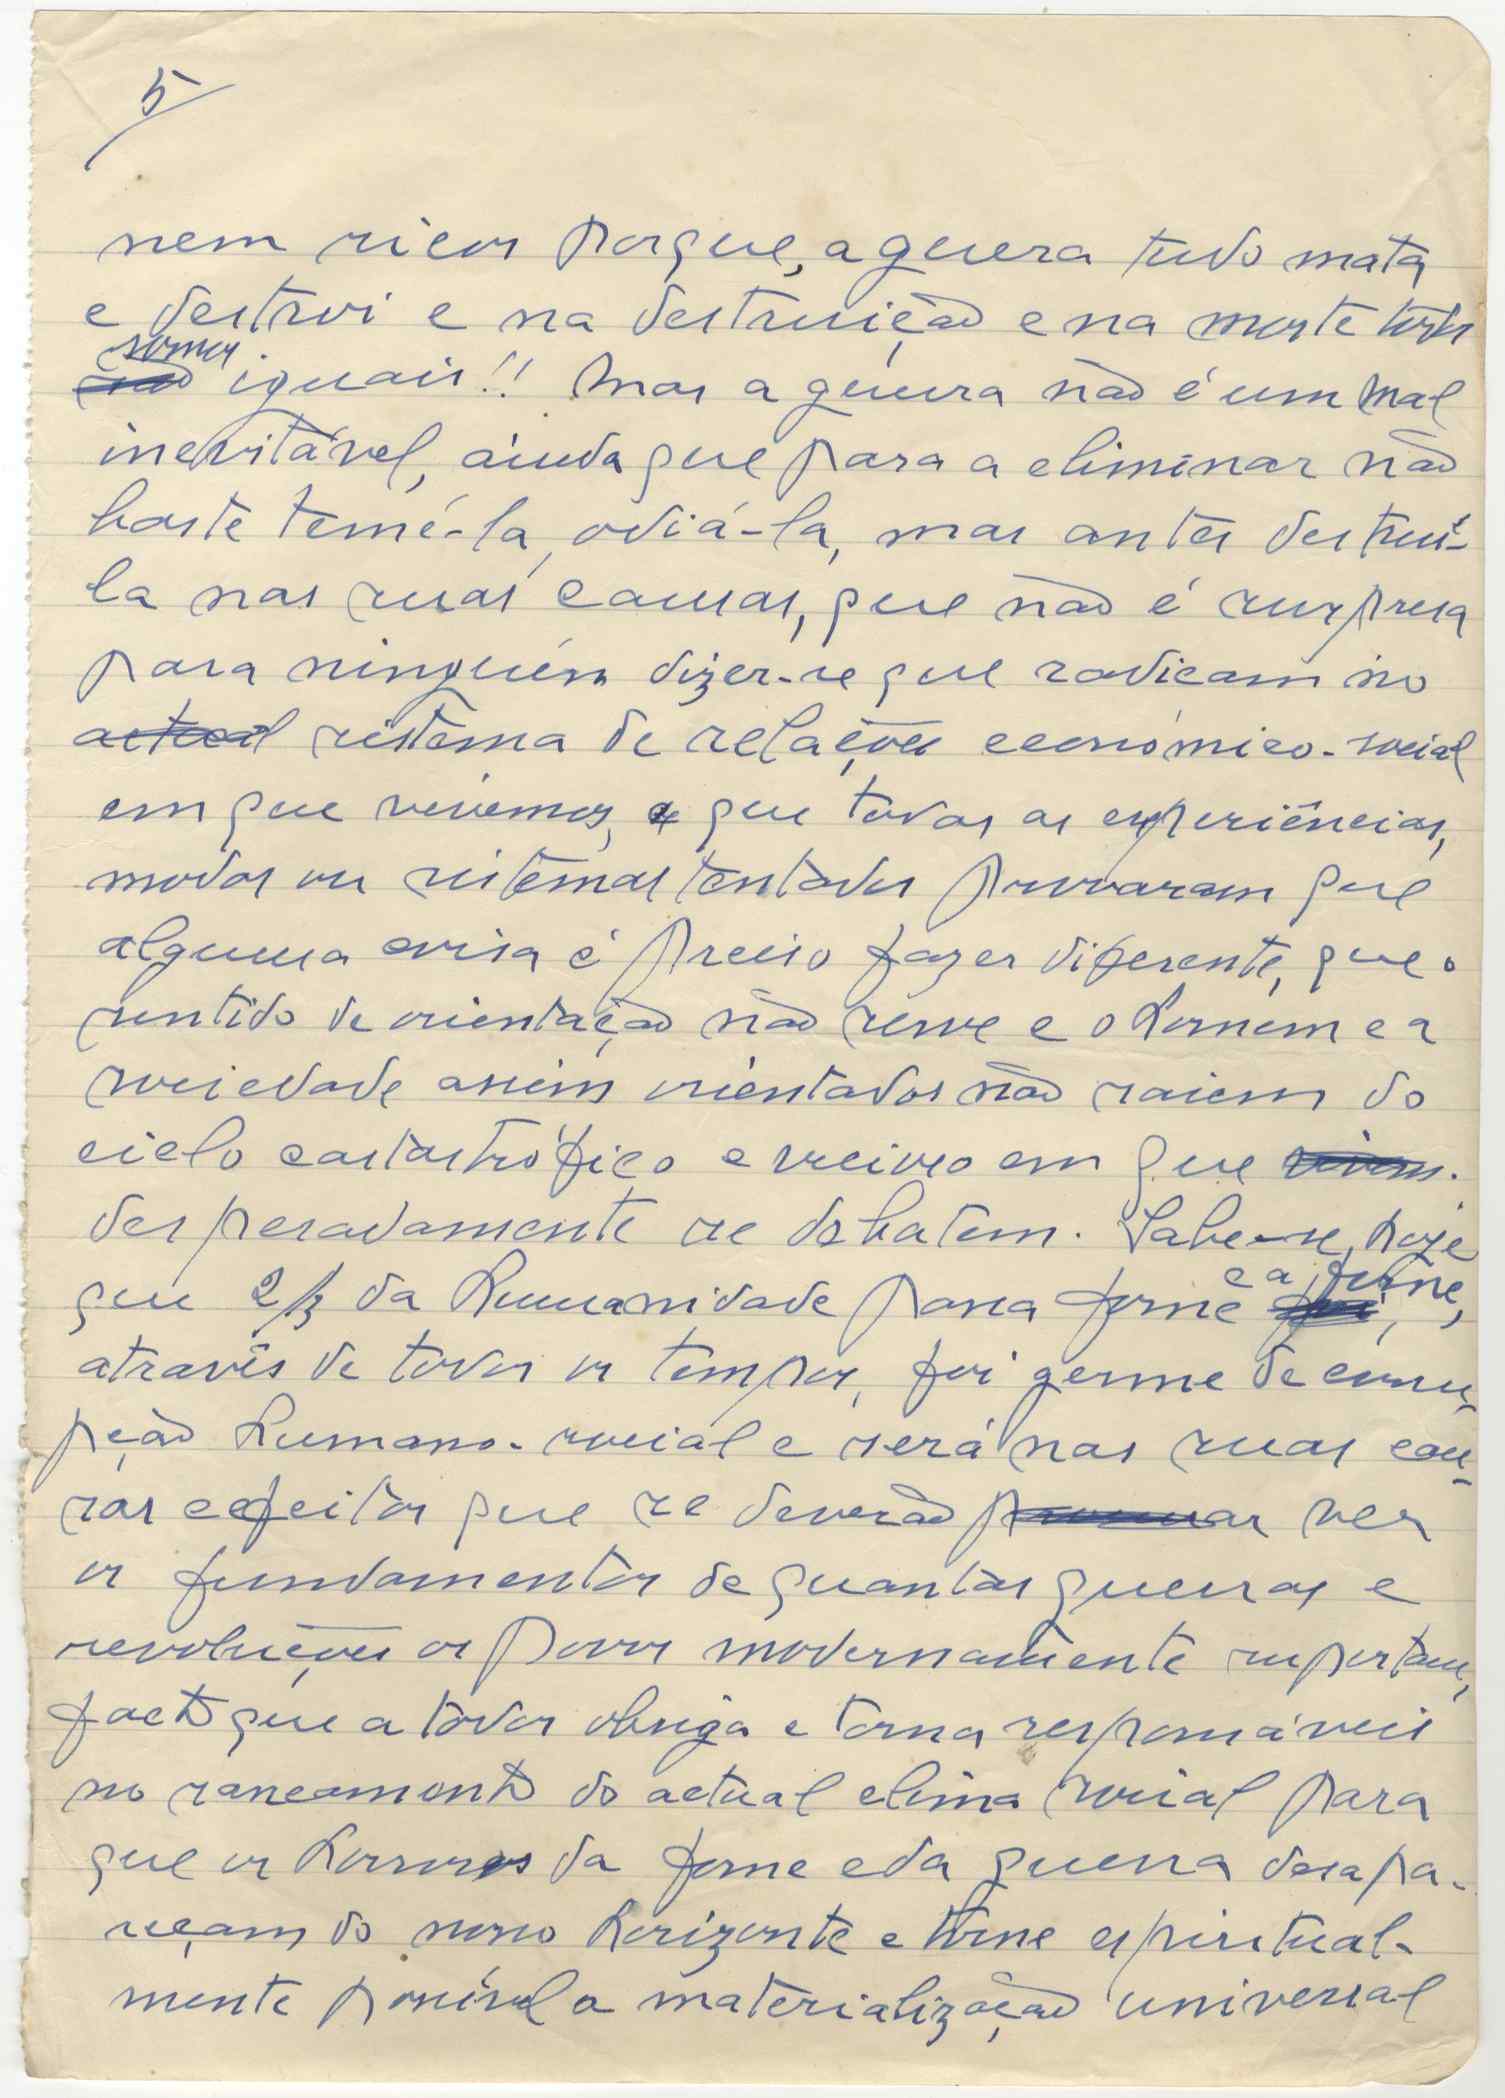 5/
nem ricos porque, a guerra tudo mata
e destroi e na destruição e na morte todos
somos
são iguais!! Mas a guerra não é um mal
inevitável, ainda que para a eliminar não
baste temê-la, odiá-la, mas antes destrui-
la nas suas causas, que não é surpresa
para ninguém dizer-se que radicam no
actual sistema de relações económico-social
em que vivemos, e que todas as experiências,
modos ou sistemas tentados provaram que
alguma coisa é preciso fazer diferente, que o
sentido de orientação não serve e o homem e a
sociedade assim orientados não saiem do
ciclo castastrófico e vicioso em que vivem.
desperadamente se debatem. Sabe-se, hoje
e a fome,
que 2/3 da humanidade passa fome,
através de todos os tempos, foi germe de corru-
pção humano-social e será nas suas cau-
sas e efeitos que se deverão procurar ver
os fundamentos de quantas guerras e
revoluções os povos modernamente suportam,
facto que a todos obriga e torna responsáveis
no saneamento do actual clima social para
que os horrores da fome e da guerra desapa-
reçam do nosso horizonte e torne espiritual-
mente possível a materialização universal